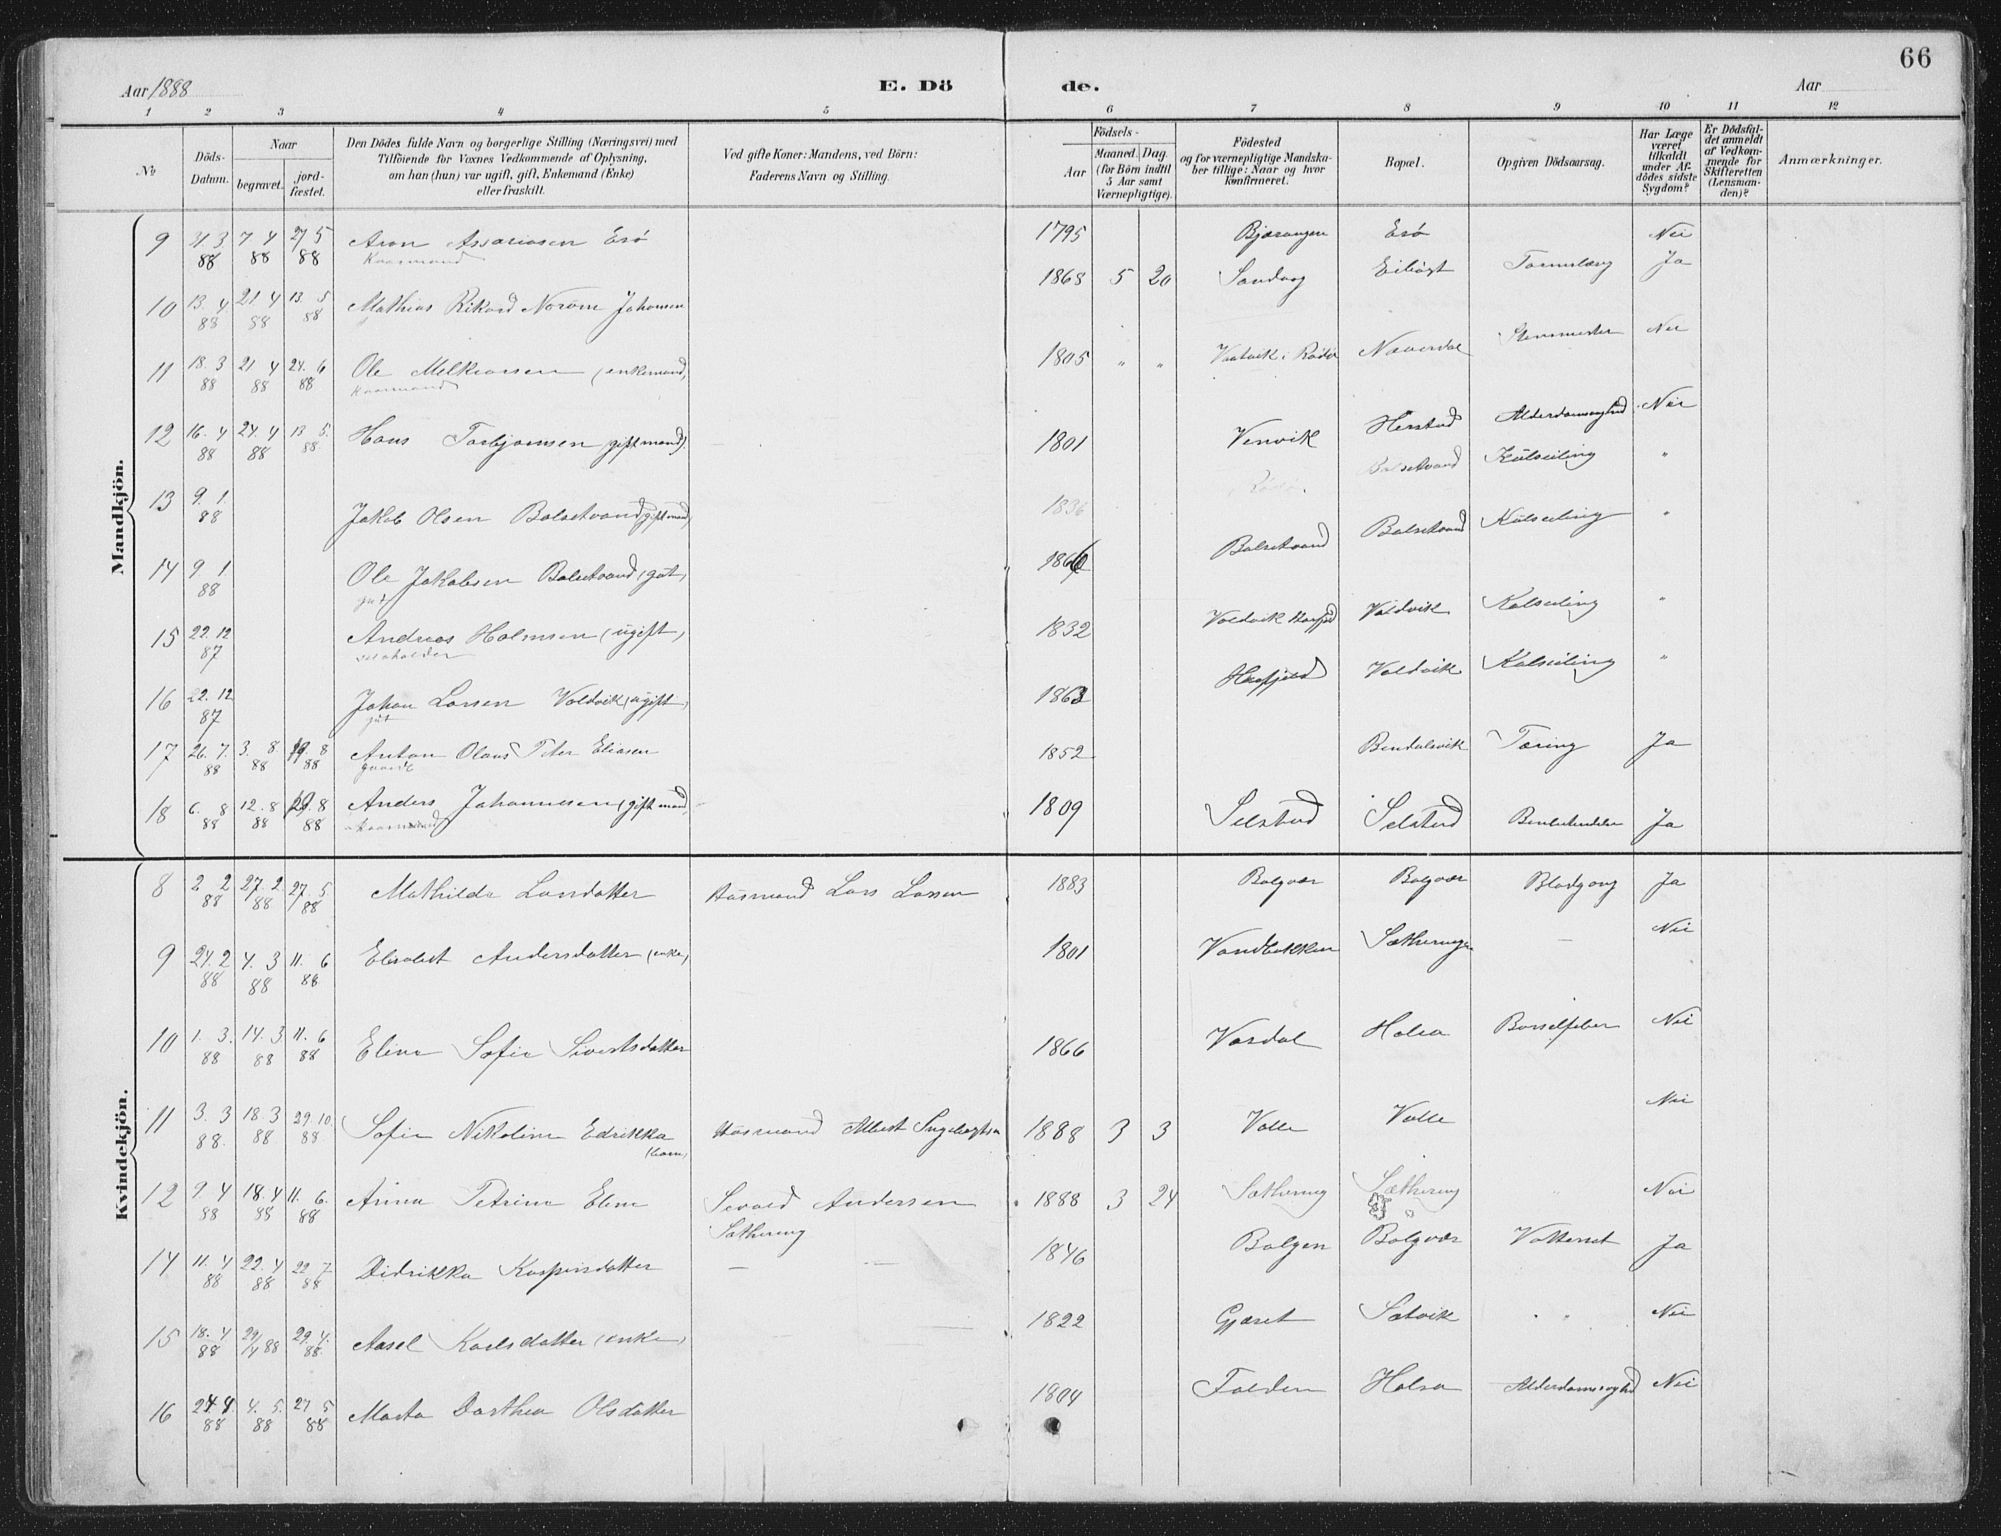 66
Aar 1888
E. Dö
de.
Aar
1 2 3 4 5 6 7 8 9 10 11 12
No
Döds-Datum.
Naar
begravet.
jord-fæstet.
Den Dödes fulde Navn og borgerlige Stilling (Næringsvei) med
Tilföiende for Voxnes Vedkommende af Oplysning,
om han (hun) var ugift, gift, Enkemand (Enke)
eller fraskilt.
Ved gifte Koner: Mandens, ved Börn:
Faderens Navn og Stilling.
Födsels-
Aar
Maaned. Dag.
(for Börn indtil
5 Aar samt
Værnepligtige).
Födested
og for værnepligtige Mandska-
ber tillige: Naar og hvor
konfirmeret.
Bopæl.
Opgiven Dödsaarsag.
Har Læge
været
tilkaldt
under Af-
dödes sidste
Sygdom?
Er Dödsfal-
det anmeldt
af Vedkom-
mende for
Skifteretten
(Lensman-
den)?
Anmærkninger.
Mandkjön.
9 4 3 88 7 4 88 27 5 88 Aron Assariasen Esø 1795 Bjærangen Esø Nei
Kaarmand
10 13 4 88 21 4 88 13 5 88 Mathias Rikard Norum Johansen 1868 5 20 Sandvag Ja
11 18 3 88 21 4 88 24. 6 88 Ole Melkiorsen (enkemand) 1805 " " i Rødø Næverdal Nei
Kaarmand
12 16. 4 88 24. 4 88 13 5. 88 Hans Torbjørnsen (gift mand) 1801 Venvik Herstad Alderdomssvaghed Nei
13 9. 1. 88 Jakob Olsen Balsetvand (gift mand) 1836 Rødø Balsetvand Kulseiling "
14 9 1. 88 Ole Jakobsen Balsetvand (gut) 1866 Balsetvand Balsetvand Kulseiling "
gut
15 22. 12 87 Andreas Holmsen (ugift) 1832 Voldvik Voldvik Kulseiling "
16 22. 12 87 Johan Larsen Voldvik (ugift) 1863 Voldvik Kulseiling "
gut
17 26. 7. 88 3. 8 88 19. 8 88 Anton Olaus Peter Eliasen 1852 Bindalsvik Tæring Ja
18 6. 8 88 12. 8 88 8 88 Anders Johannesen (gift mand) 1809 Selstad Selstad Ja
Kaarmand
Kvindekjön.
8 2 2 88 27. 2. 88 27. 5 88 Mathilde Larsdatter Husmand Lars Larsen 1883 Bolgvær Bolgvær Blodgang Ja
9 24. 2 88 4. 3 88 11. 6 88 Elisabet Andersdatter (enke) 1801 Vandbakken Sætherengen — Nei
10 1. 3. 88 14. 3 88 11. 6 88 Elina Sofie Sivertsdatter 1866 Vasdal Halsa Barselfeber Nei
11 3. 3 88. 18. 3 88 29. 10. 88 Sofie Nikoline Edrikka Husmand Albert Ingebrigtsen 1888 3 3 Valle Valle Nei
(barn)
12 9. 4 88 18. 4 88 11. 6. 88 Anna Petrina Elena Sevald Andersen 1888 3 24 Sæthereng Sæthereng Nei
Sæthereng
14 11. 4 88 22. 4 88 22. 7 88 Didrikka Kaspersdatter — — 1846 Bolgen Bolgvær Vattersot Ja
15 18. 4 88 29/4 88 29. 4. 88. Aasel Karlsdatter (enke) 1822 Gjæset Sætvik " " Nei
16 24 4 88 4. 5. 88 27 5 88 Marta Dorthea Olsdatter 1804 Folden Halsa Alderdomssvaghed Nei